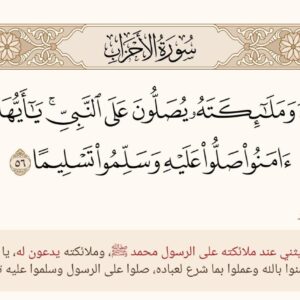 سُورَةُ الأَحْزَابِ
وَمَلَـٰٓئِكَتَهُۥ يُصَلُّونَ عَلَى ٱلنَّبِيِّ ۚ يَـٰٓأَيُّهَا
ءَامَنُوا۟ صَلُّوا۟ عَلَيْهِ وَسَلِّمُوا۟ تَسْلِيمًا ٥٦
يثني عند ملائكته على الرسول محمد ﷺ، وملائكته يدعون له، يا
بالله وعملوا بما شرع لعباده، صلوا على الرسول وسلموا عليه